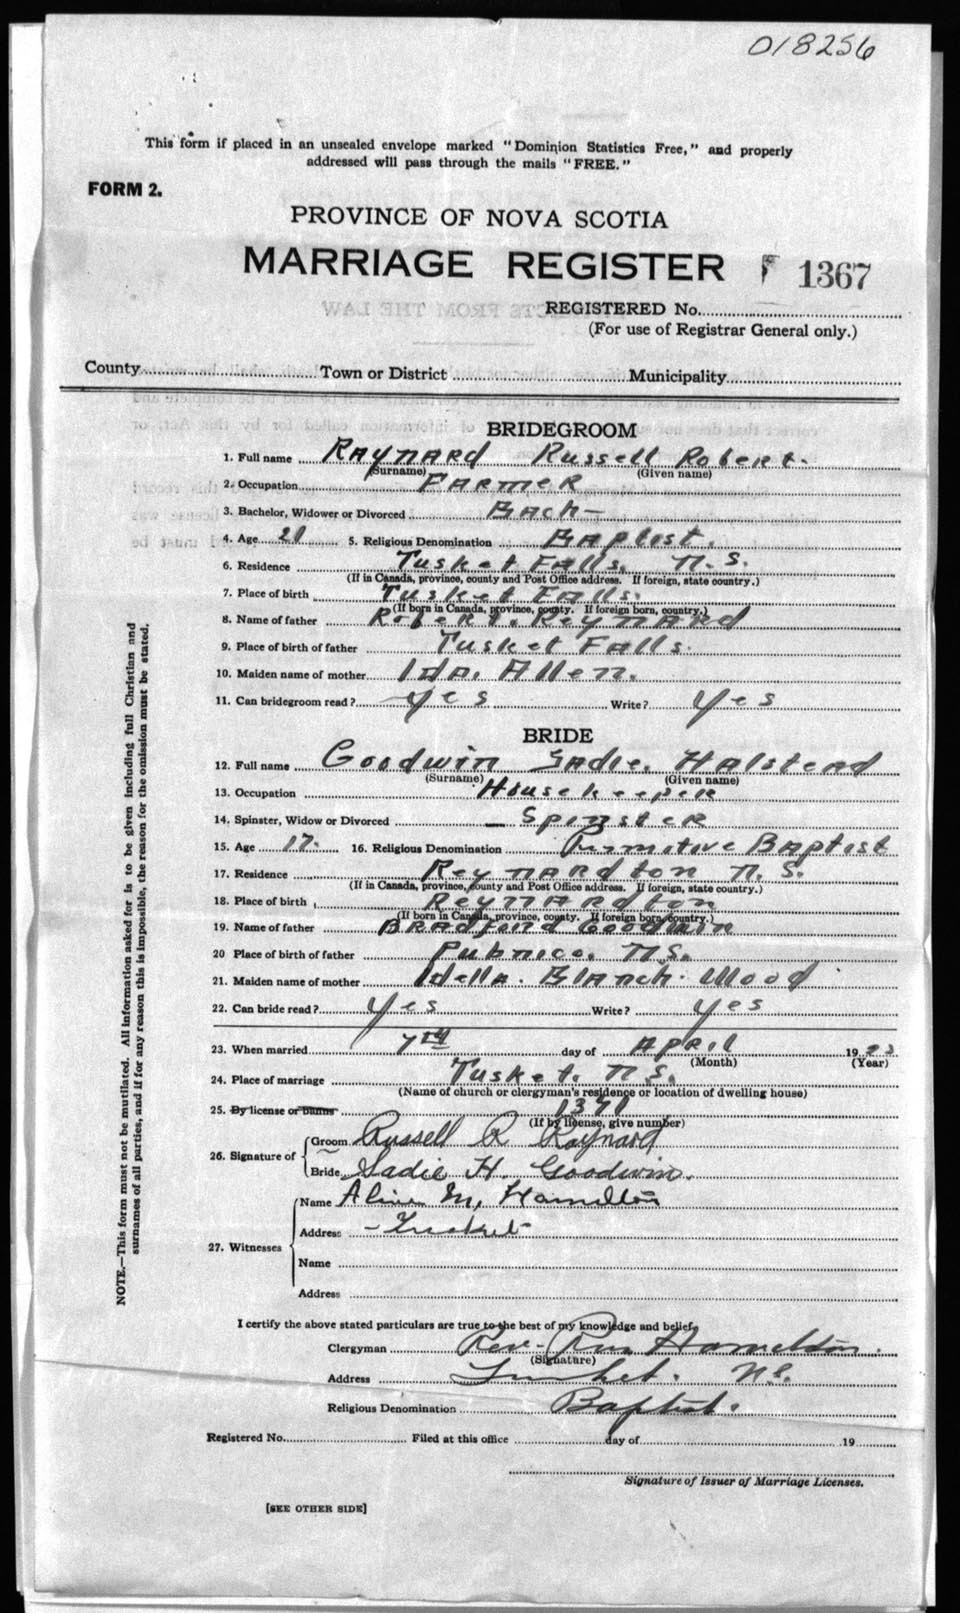 018256
This form if placed in an unsealed envelope marked "Dominion Statistics Free," and properly
addressed will pass through the mails "FREE."
FORM 2.
PROVINCE OF NOVA SCOTIA
MARRIAGE REGISTER 1367
REGISTERED No.
(For use of Registrar General only.)
County Town or District Municipality
BRIDEGROOM
1. Full name Raynard Russell Robert.
(Surname) (Given name)
2. Occupation Farmer
3. Bachelor, Widower or Divorced Bach—
4. Age 5. Religious Denomination Baptist.
6. Residence Tusket Falls. N.S.
(If in Canada, province, county and Post Office address. If foreign, state country.)
7. Place of birth Tusket Falls.
(If born in Canada, province, county. If foreign born, country.)
8. Name of father Robert. Reynard
9. Place of birth of father Tusket Falls.
10. Maiden name of mother Ida. Allen.
11. Can bridegroom read? yes Write? yes
BRIDE
12. Full name Goodwin Sadie. Halstead
(Surname) (Given name)
13. Occupation Housekeeper
14. Spinster, Widow or Divorced – Spinster
15. Age 17. 16. Religious Denomination Primitive Baptist
17. Residence Reynardton N.S.
(If in Canada, province, county and Post Office address. If foreign, state country.)
18. Place of birth Reynardton
(If born in Canada, province, county. If foreign born, country.)
19. Name of father Bradford Goodwin
20 Place of birth of father Pubnico. N.S.
21. Maiden name of mother Idella. Blanch. Wood
22. Can bride read? yes Write? yes
23. When married 7th day of April 19
(Month) (Year)
24. Place of marriage Tusket. N.S.
(Name of church or clergyman's residence or location of dwelling house)
25. By license or banns
(If by license, give number)
26. Signature of Groom Russell R Raynard
Bride Sadie H. Goodwin.
27. Witnesses Name M. Hamilton
Address – Tusket
Name
Address
I certify the above stated particulars are true to the best of my knowledge and belief.
Clergyman Rev. Hamilton.
(Signature)
Address Tusket. N.S.
Religious Denomination Baptist.
Registered No. Filed at this office day of 19
Signature of Issuer of Marriage Licenses.
[SEE OTHER SIDE]
NOTE.—This form must not be mutilated. All information asked for is to be given including full Christian and
surnames of all parties, and if for any reason this is impossible, the reason for the omission must be stated.